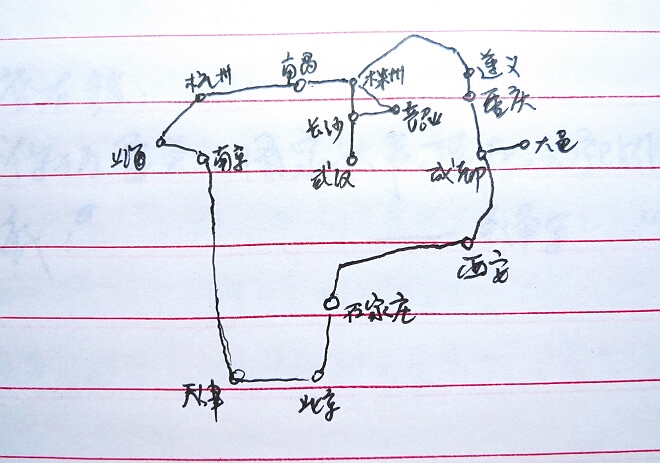 南昌
株州
遵义
杭州
重庆
长沙
韶山
上海
南京
武汉
成都
大邑
西安
石家庄
天津
北京